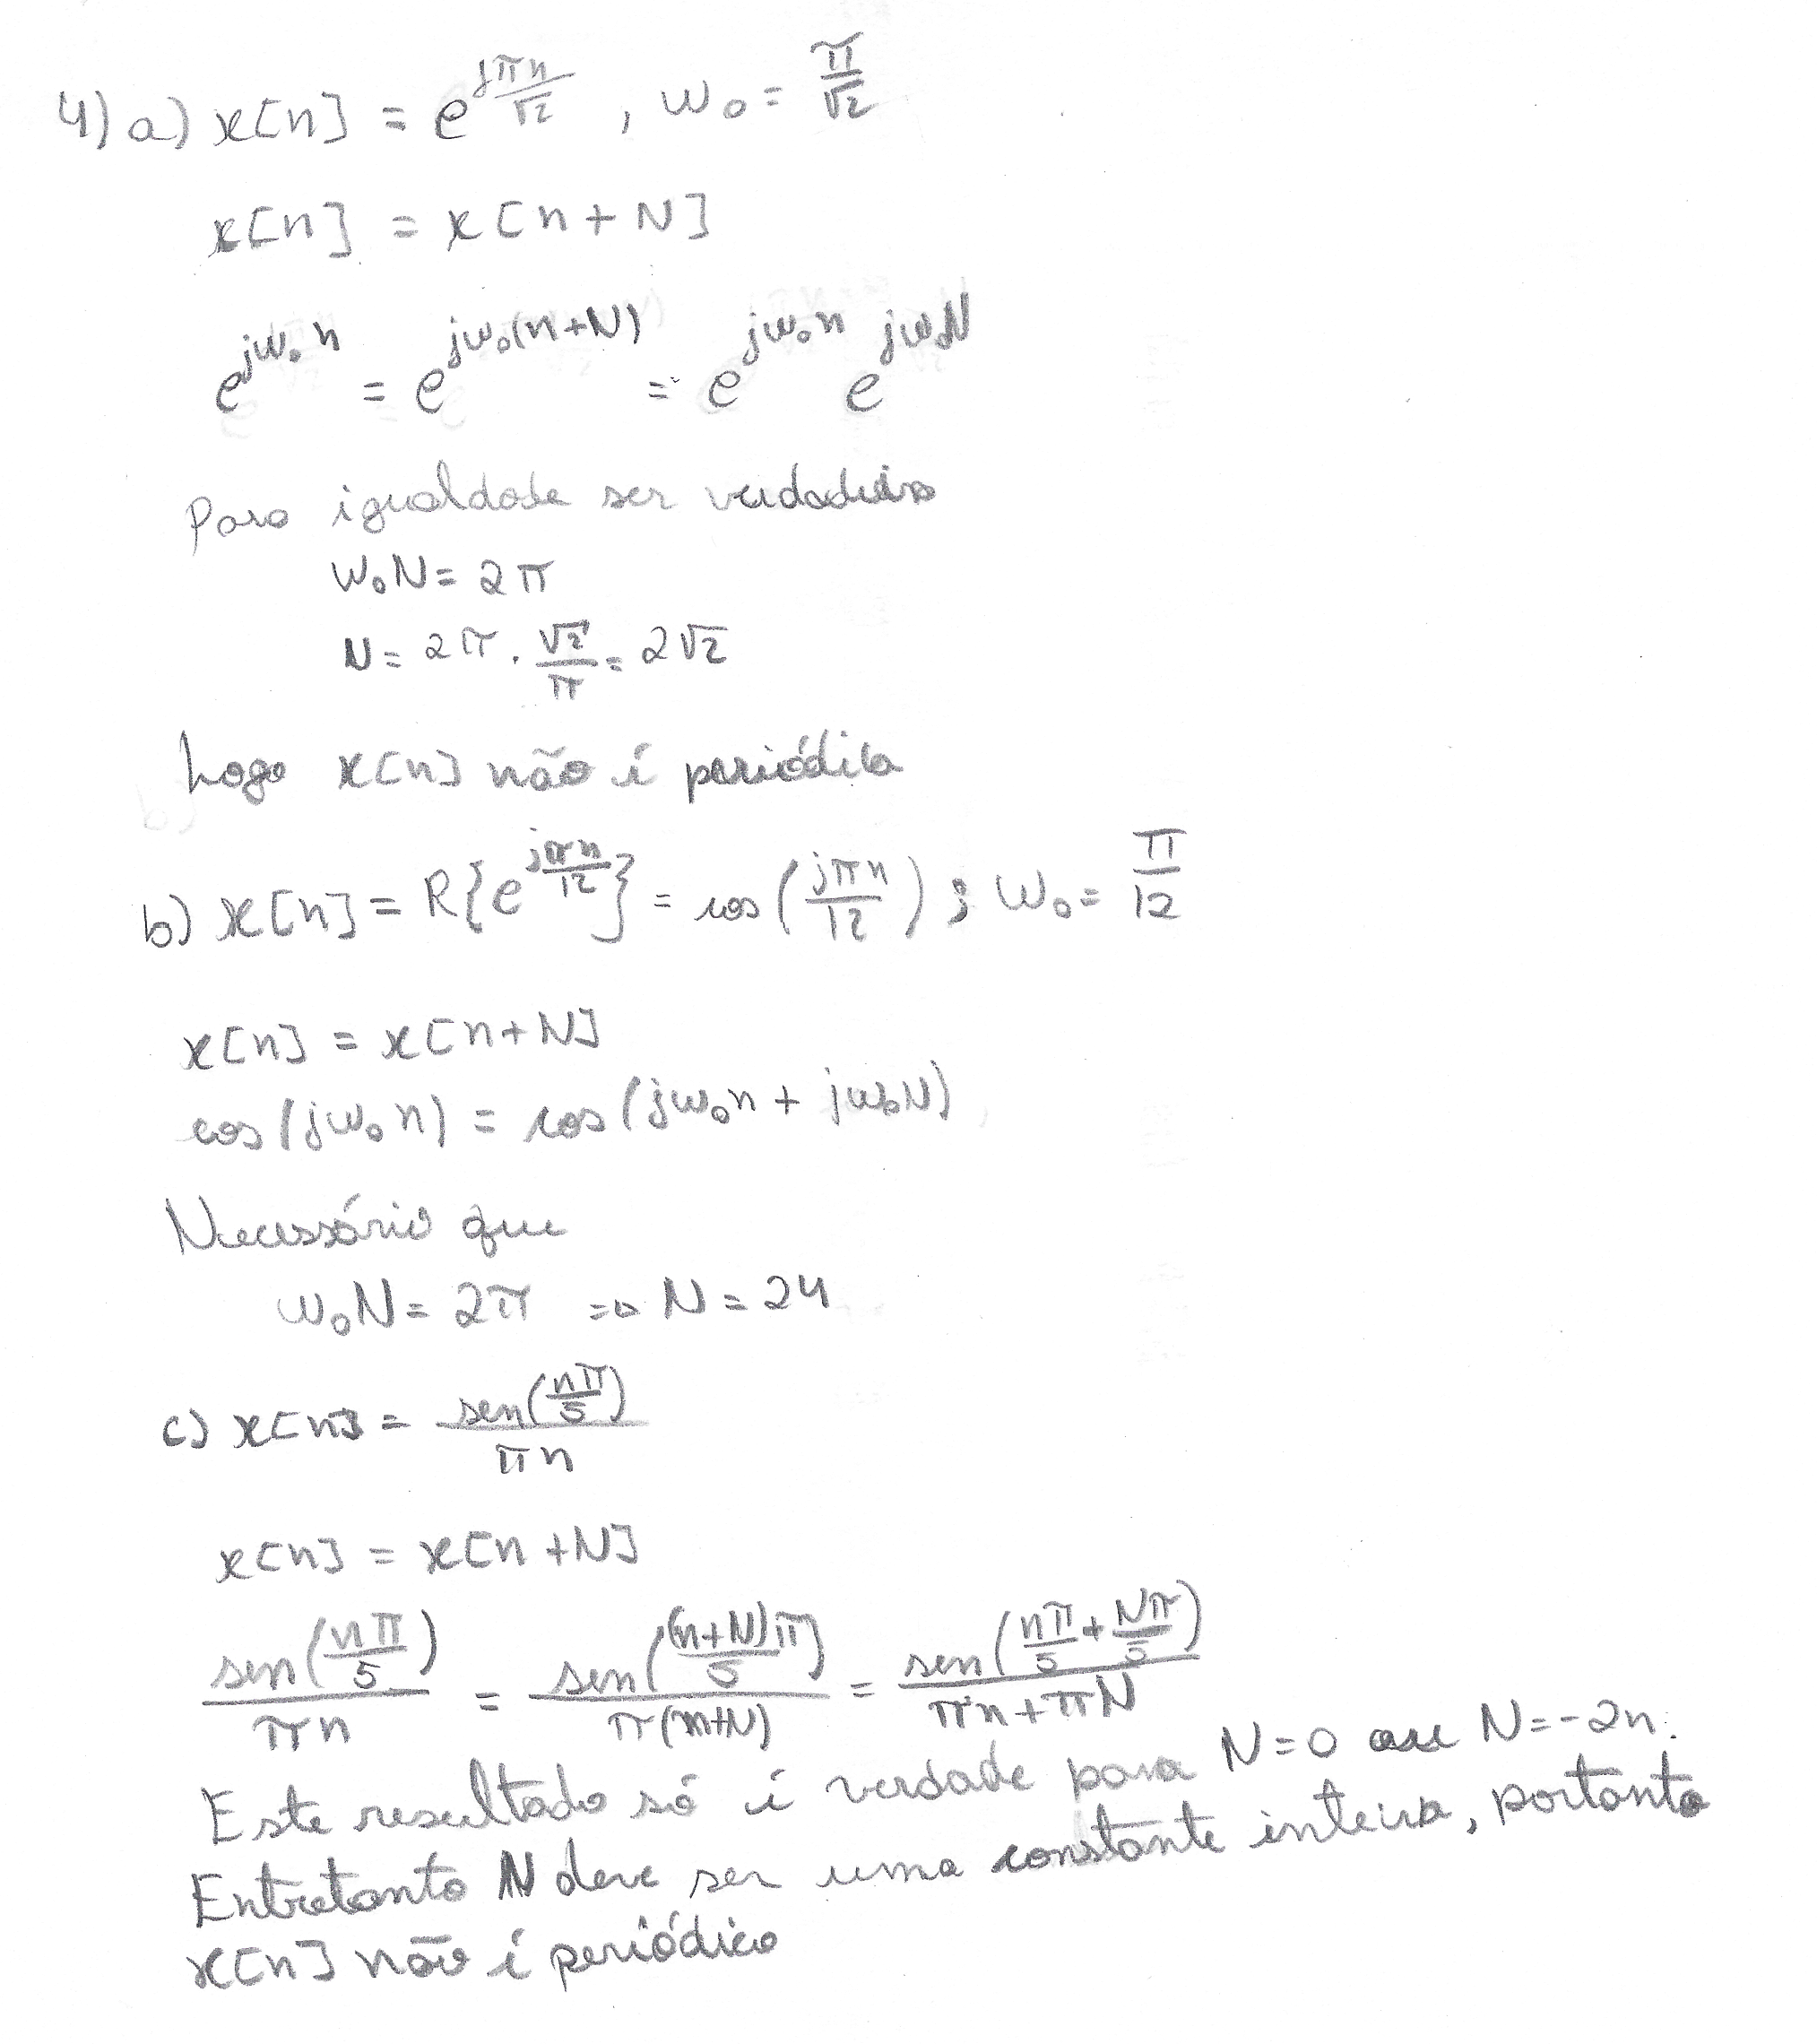 4) a) x[n] = e^{jπn/√2} , w₀ = π/√2
x[n] = x[n+N]
e^{jw₀n} = e^{jw₀(n+N)} = e^{jw₀n} e^{jw₀N}
Para igualdade ser verdadeira
w₀N = 2π
N = 2π . √2/π = 2√2
Logo x[n] não é periódica
b) x[n] = R{e^{jπn/12}} = cos(jπn/12) ; w₀ = π/12
x[n] = x[n+N]
cos(jw₀n) = cos(jw₀n + jw₀N)
Necessário que
w₀N = 2π => N = 24
c) x[n] = sen(nπ/5)/πn
x[n] = x[n+N]
sen(nπ/5)/πn = sen((n+N)π/5)/π(n+N) = sen(nπ/5 + Nπ/5)/πn+πN
Este resultado só é verdade para N=0 ou N=-2n.
Entretanto N deve ser uma constante inteira, portanto
x[n] não é periódico